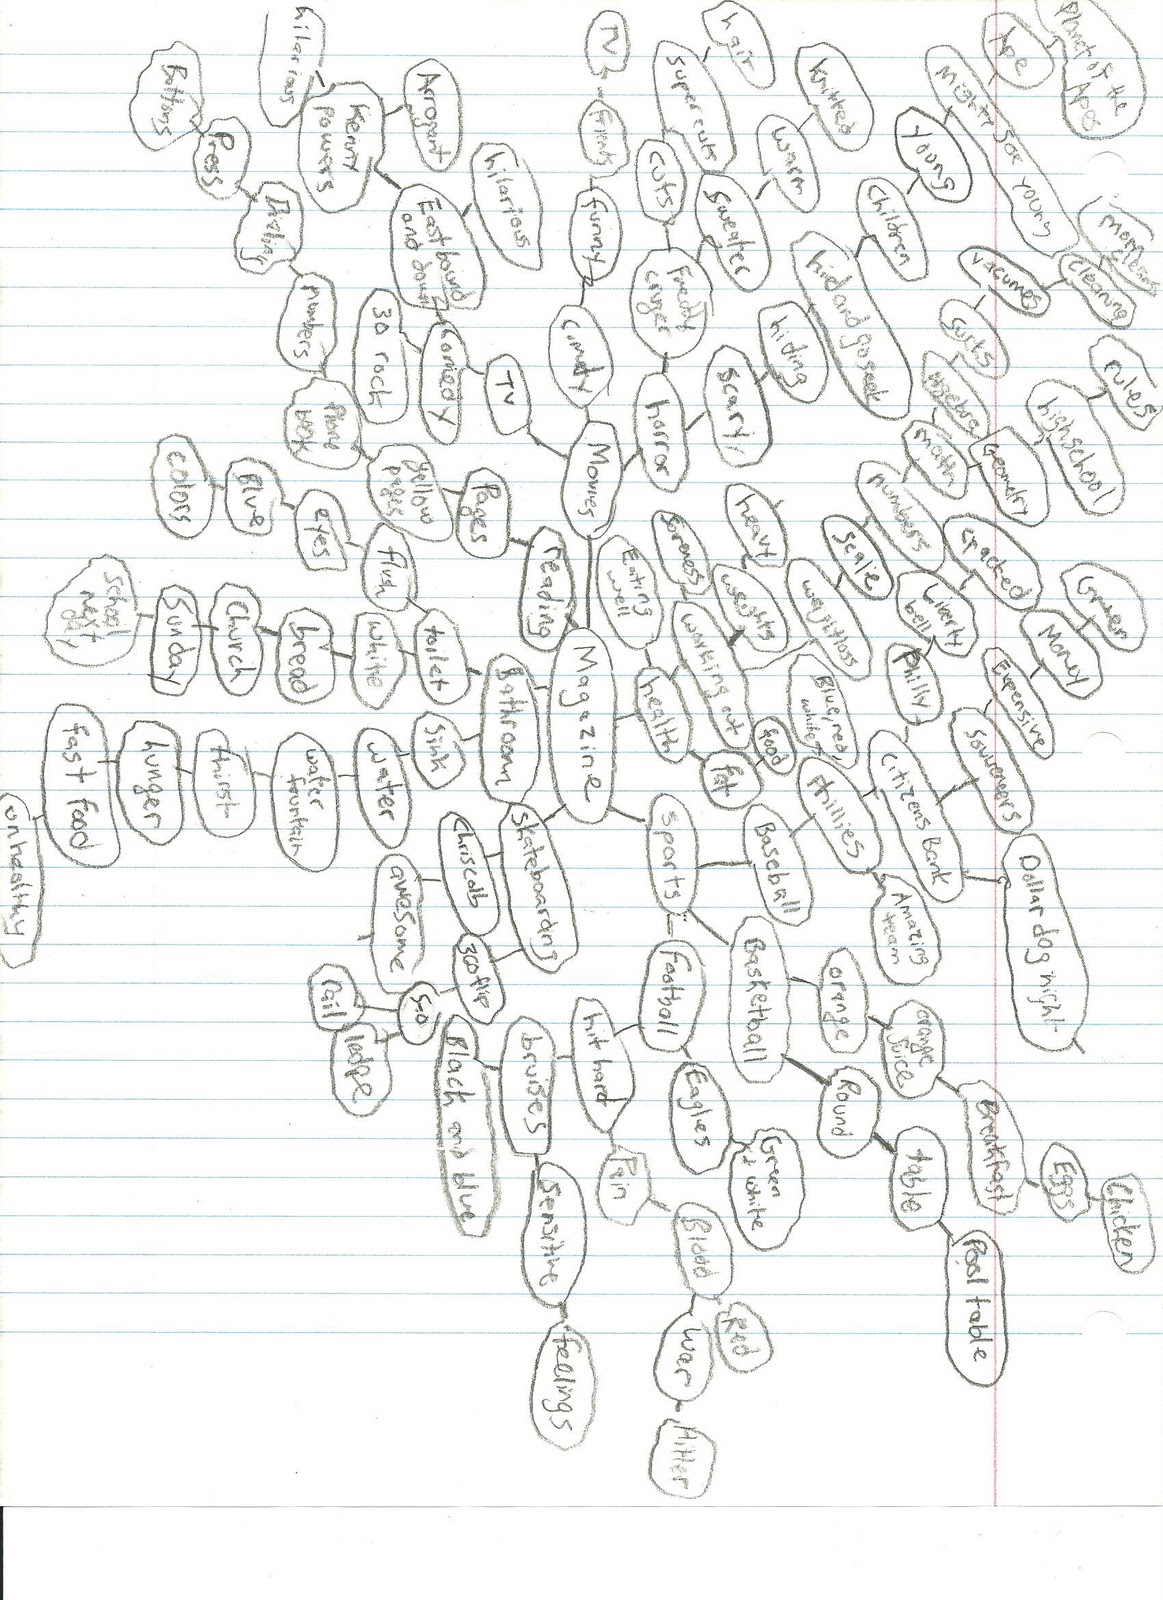 Planet of the
Apes
Ape
Mighty Joe Young
Young
Children
hid and go seek
Knitted
warm
hair
super cuts
sweater
cuts
TV
Friends
funny
Freddy
cruger
horror
scary
hiding
cleaning
vacumes
sucks
rules
highschool
Geometry
math
numbers
scale
cracked
Liberty
bell
Philly
Green
Money
Expensive
Souveneers
Citizens Bank
Dollar dog night
Phillies
Amazing
team
Blue, red
white
weightloss
heavy
weights
soreness
working out
Eating
well
health
fat
Good
Movies
TV
comedy
30 rock
East bound
and down
hilarious
Arrogant
Kenny
powers
hilarious
Buttons
Press
Dialing
numbers
yellow
pages
Pages
reading
Magazine
Bathroom
toilet
flush
eyes
Blue
colors
white
bread
Church
Sunday
School
next
day
sink
water
water
fountain
thirst
hunger
fast food
unhealthy
skateboardng
Chris colb
awesome
360 flip
5-0
rail
ledge
sports
Baseball
Basketball
orange
orange
juice
Breakfast
Eggs
Chicken
Round
table
Pool table
football
Eagles
Green
white
hit hard
Pain
Blood
Red
war
Hitler
bruises
Black and blue
sensitive
feelings